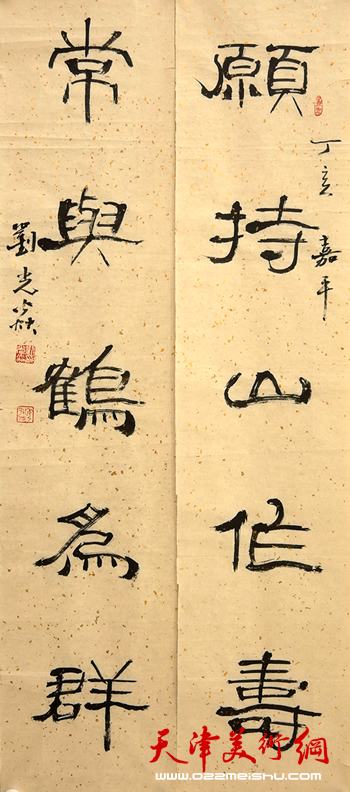 願持山作壽
丁亥嘉平
常與鶴為群
劉光焱
天津美術網
www.022meishu.com